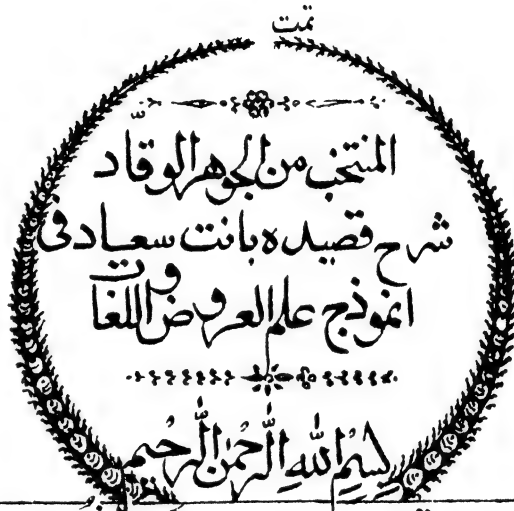 تمت
المنتخب من الجوهر الوقّاد
شرح قصيده بانت سعاد فى
انموذج علم العروض واللغات
بِسْمِ اللّٰهِ الرَّحْمٰنِ الرَّحِيْمِ